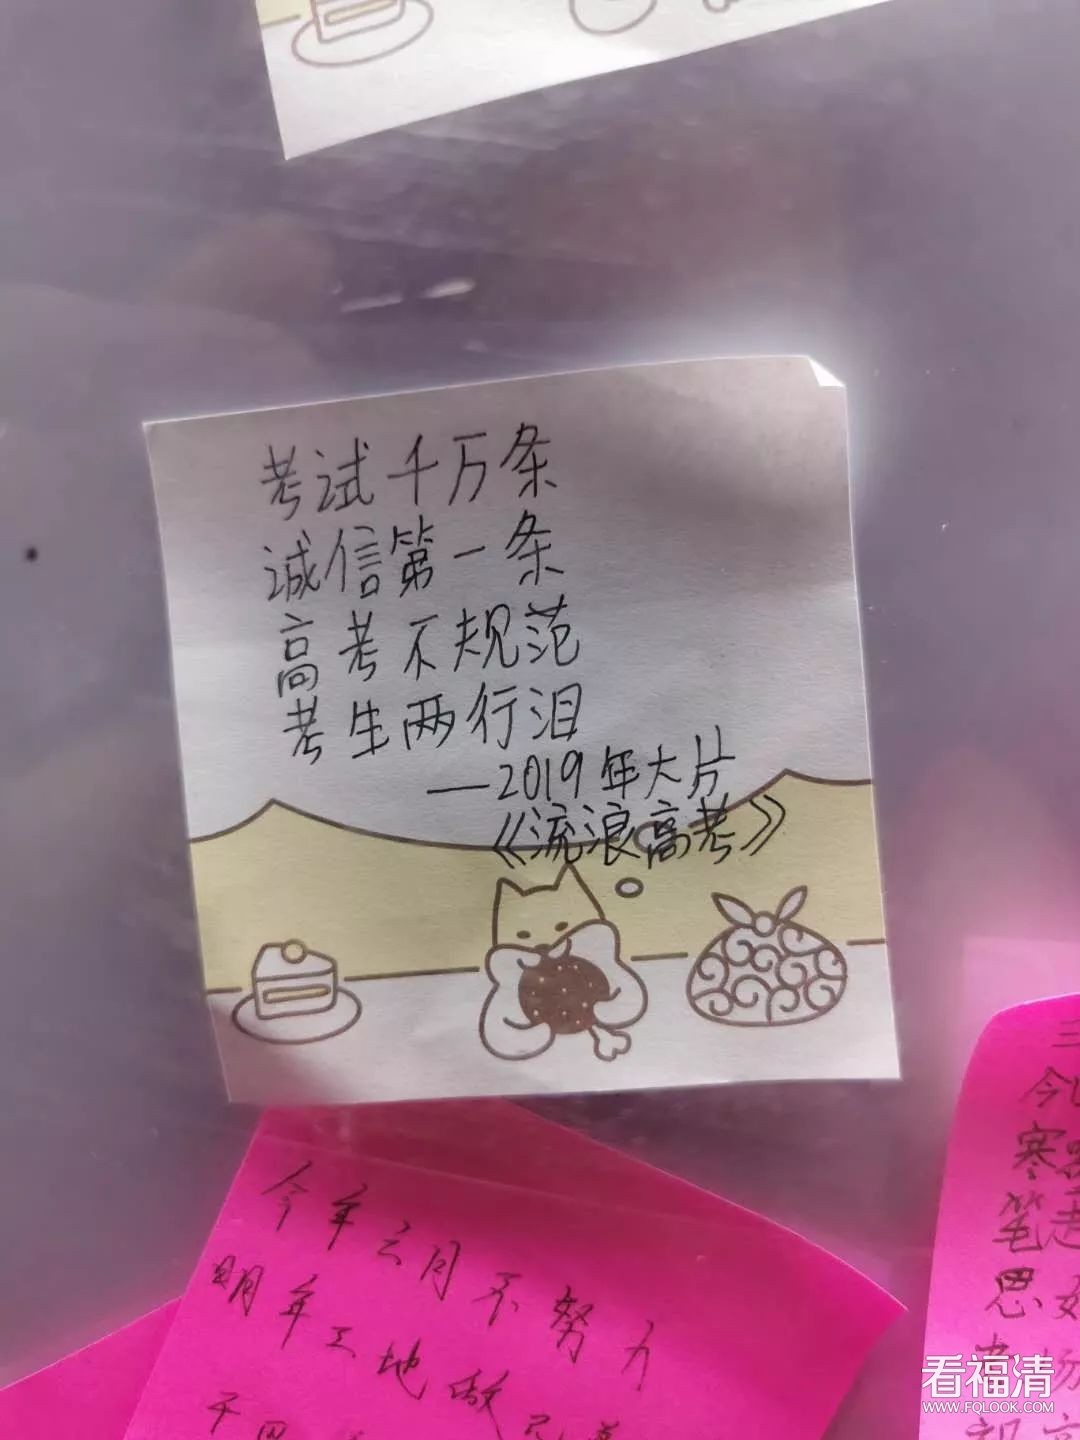 考试千万条
诚信第一条
高考不规范
考生两行泪
—2019年大片
《流浪高考》
今年六月不努力
明年工地做
三
今
寒
笔走
思如
看福清
WWW.FQLOOK.COM